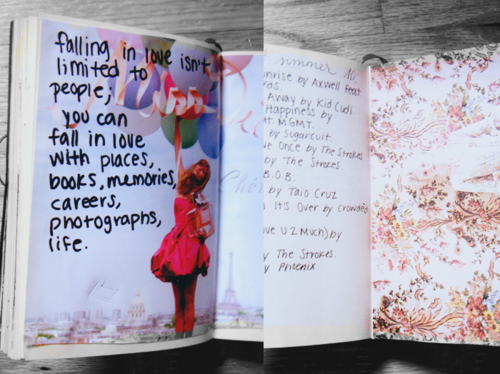 falling in love isn't
limited to
people;
you can
fall in love
with places,
books, memories,
careers,
photographs,
life.
summer 10
nrise by Axwell feat
ds.
Away by Kid Cudi
Happiness by
t. MGMT.
by Sugarcult.
e Once by The Strokes
by The Strokes.
B.O.B.
by Taio Cruz
It's Over by Crowded
ve U 2 Much) by
y The Strokes.
y Phoenix